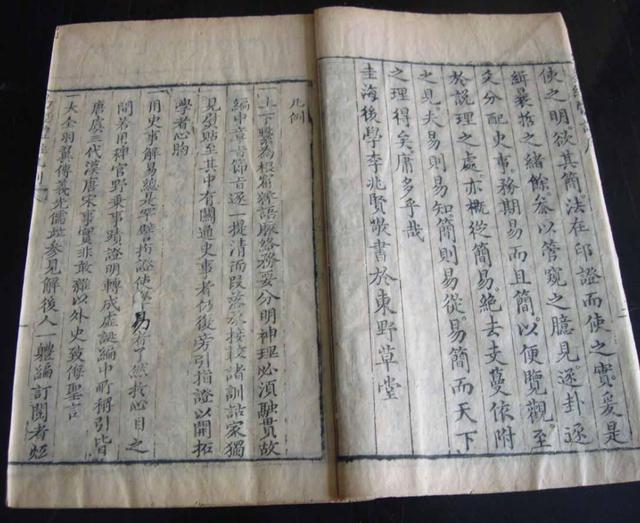 使之明欲其簡法在印證而使之實爰是
緝暴括之緒餘參以管窺之臆見逐卦逐
爻分配史事務期易而且簡以便覽觀至
於說理之處亦概從簡易絕去支蔓依附
之見夫易則易知簡則易從易簡而天下
之理得矣庸多乎哉
圭海後學李兆賢敬書於東野草堂
凡例
一上下繫為根窟辭語脈絡務要分明神理必須融貫故
編中章旨節旨逐一提清而段落承接較諸訓詁家獨
見熨貼至其中有關通史事者仍復旁引指證以開拓
學者心胸
一用史事解易總是罕譬指證使學易者了然於心目之
間若用稗官野乘事蹟證明轉成虛誕編中所稱引皆
唐虞三代漢唐宋事實非敢雜以外史致侮聖言
一大全羽翼傳義先儒
參見解後人一
編訂閱者